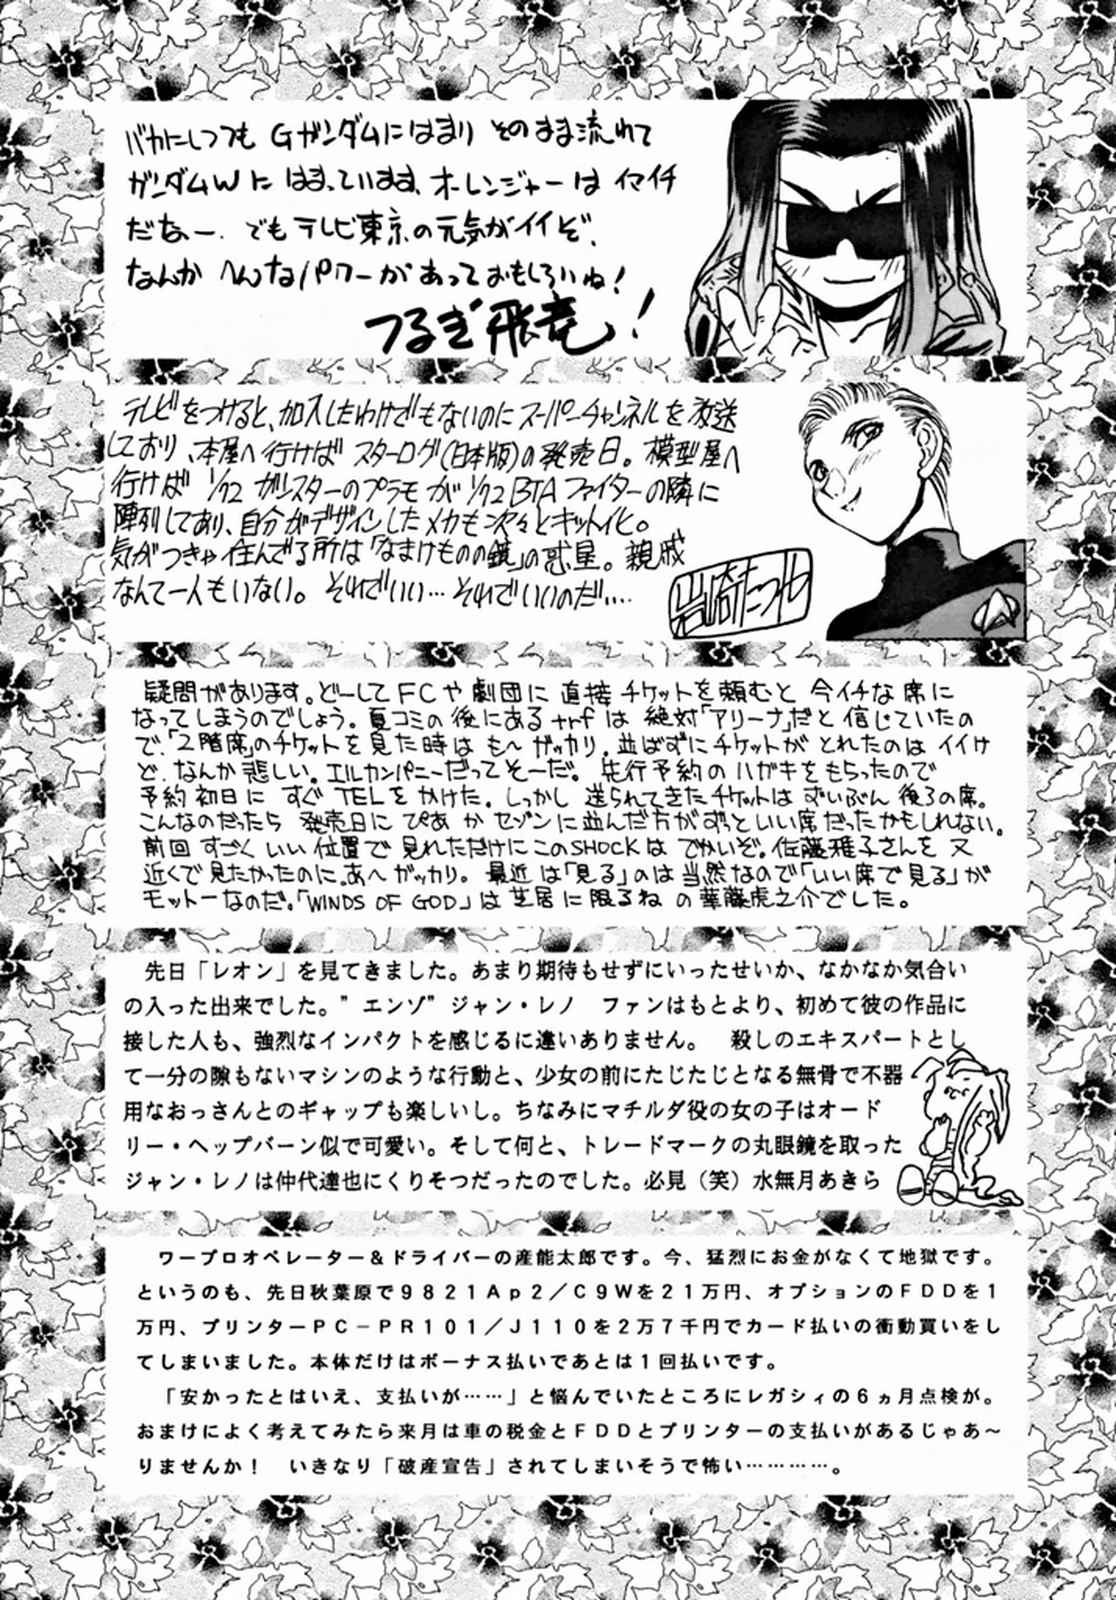 バカにしつつも Gガンダムにはまり そのまま流れて
ガンダムWに はまっています、オーレンジャーは イマイチ
だなー、でもテレビ東京の元気がイイぞ、
なんか へんなパワーがあっておもしろいね!
つるぎ飛竜!
テレビをつけると、加入したわけでもないのにスーパーチャンネルを放送
しており、本屋へ行けば スターログ(日本版)の発売日。模型屋へ
行けば 1/72 ガンスターのプラモが 1/72 BTAファイターの隣に
陣列してあり、自分がデザインしたメカも次々とキット化。
気がつきゃ住んでる所は「なまけものの鏡」の惑星。親戚
なんて一人もいない。それでいい…それでいいのだ‥‥
岩崎たつや
疑問があります。どーしてFCや劇団に直接チケットを頼むと 今イチな席に
なってしまうのでしょう。夏コミの後にあるtrfは 絶対「アリーナ」だと信じていたの
で、「2階席」のチケットを見た時は も〜ガッカリ。並ばずにチケットが とれたのは イイけ
ど、なんか悲しい。エルカンパニーだってそーだ。先行予約のハガキをもらったので
予約初日に すぐTELをかけた。しかし 送られてきたチケットは ずいぶん後ろの席。
こんなのだったら 発売日に ぴあ か セゾンに並んだ方がずっといい席だったかもしれない。
前回 すごくいい位置で 見れただけにこのSHOCKは でかいぞ。佐藤雅子さんを又
近くで見たかったのに。あ〜ガッカリ。最近は「見る」のは当然なので「いい席で見る」が
モットーなのだ。「WINDS OF GOD」は芝居に限るね の華藤虎之介でした。
先日「レオン」を見てきました。あまり期待もせずにいったせいか、なかなか気合い
の入った出来でした。"エンゾ"ジャン・レノ ファンはもとより、初めて彼の作品に
接した人も、強烈なインパクトを感じるに違いありません。 殺しのエキスパートとし
て一分の隙もないマシンのような行動と、少女の前にたじたじとなる無骨で不器
用なおっさんとのギャップも楽しいし。ちなみにマチルダ役の女の子はオード
リー・ヘップバーン似で可愛い。そして何と、トレードマークの丸眼鏡を取った
ジャン・レノは仲代達也にくりそつだったのでした。必見(笑)水無月あきら
ワープロオペレーター&ドライバーの産能太郎です。今、猛烈にお金がなくて地獄です。
というのも、先日秋葉原で9821Ap2/C9Wを21万円、オプションのFDDを1
万円、プリンターPC-PR101/J110を2万7千円でカード払いの衝動買いをし
てしまいました。本体だけはボーナス払いであとは1回払いです。
「安かったとはいえ、支払いが……」と悩んでいたところにレガシィの6ヵ月点検が。
おまけによく考えてみたら来月は車の税金とFDDとプリンターの支払いがあるじゃあ〜
りませんか! いきなり「破産宣告」されてしまいそうで怖い…………。